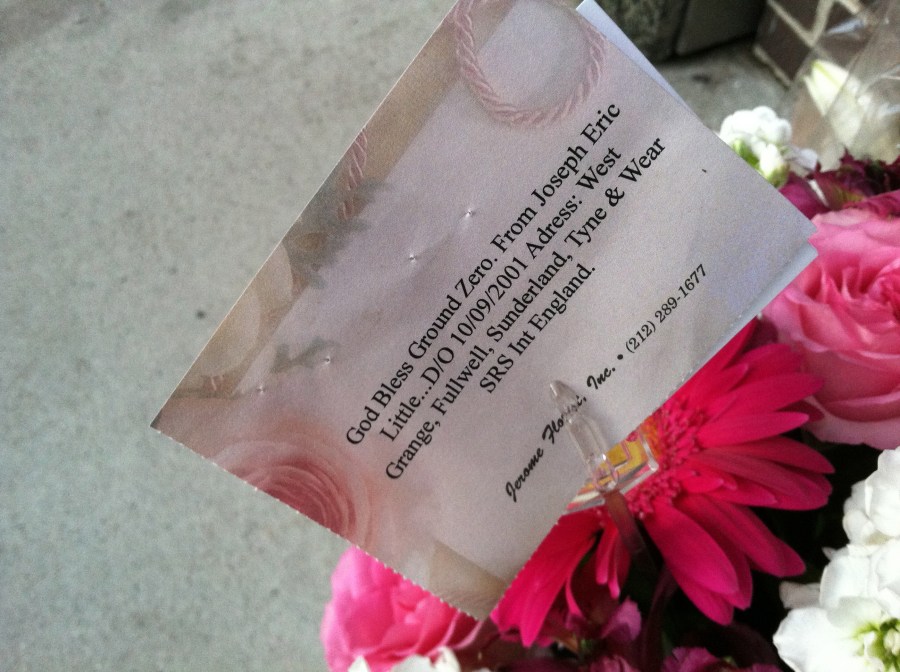 God Bless Ground Zero. From Joseph Eric
Little...D/O 10/09/2001 Adress: West
Grange, Fullwell, Sunderland, Tyne & Wear
SRS Int England.
Jerome Florist, Inc. • (212) 289-1677